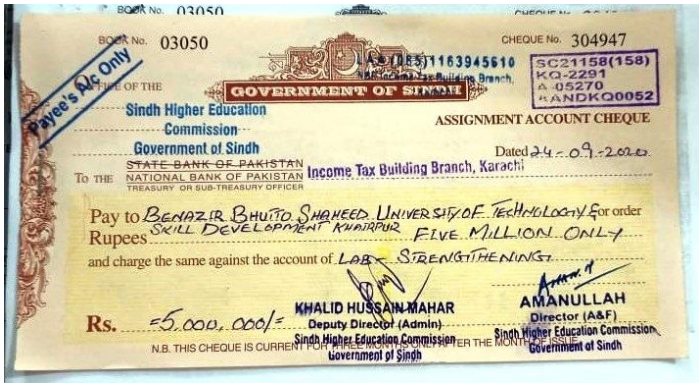 BOOK No. 03050
BOOK No. 03050 CHEQUE No. 304947
Payee's A/c Only
LAA(DBS)1163945610
NBP Income Tax Building Branch,
SC21158(158)
KQ-2291
A-05270
KANDKQ0052
OFFICE OF THE
GOVERNMENT OF SINDH
Sindh Higher Education
Commission
Government of Sindh
ASSIGNMENT ACCOUNT CHEQUE
Dated 24-09-2020
STATE BANK OF PAKISTAN
TO THE NATIONAL BANK OF PAKISTAN Income Tax Building Branch, Karachi
TREASURY OR SUB-TREASURY OFFICER
Pay to BENAZIR BHUTTO SHAHEED UNIVERSITY OF TECHNOLOGY & or order
Rupees SKILL DEVELOPMENT KHAIRPUR FIVE MILLION ONLY
and charge the same against the account of LAB STRENGTHENING
KHALID HUSSAIN MAHAR
Deputy Director (Admin)
Sindh Higher Education Commission
Government of Sindh
AMANULLAH
Director (A&F)
Sindh Higher Education Commission
Government of Sindh
Rs. =5,000,000/=
N.B. THIS CHEQUE IS CURRENT FOR THREE MONTHS ONLY AFTER THE MONTH OF ISSUE